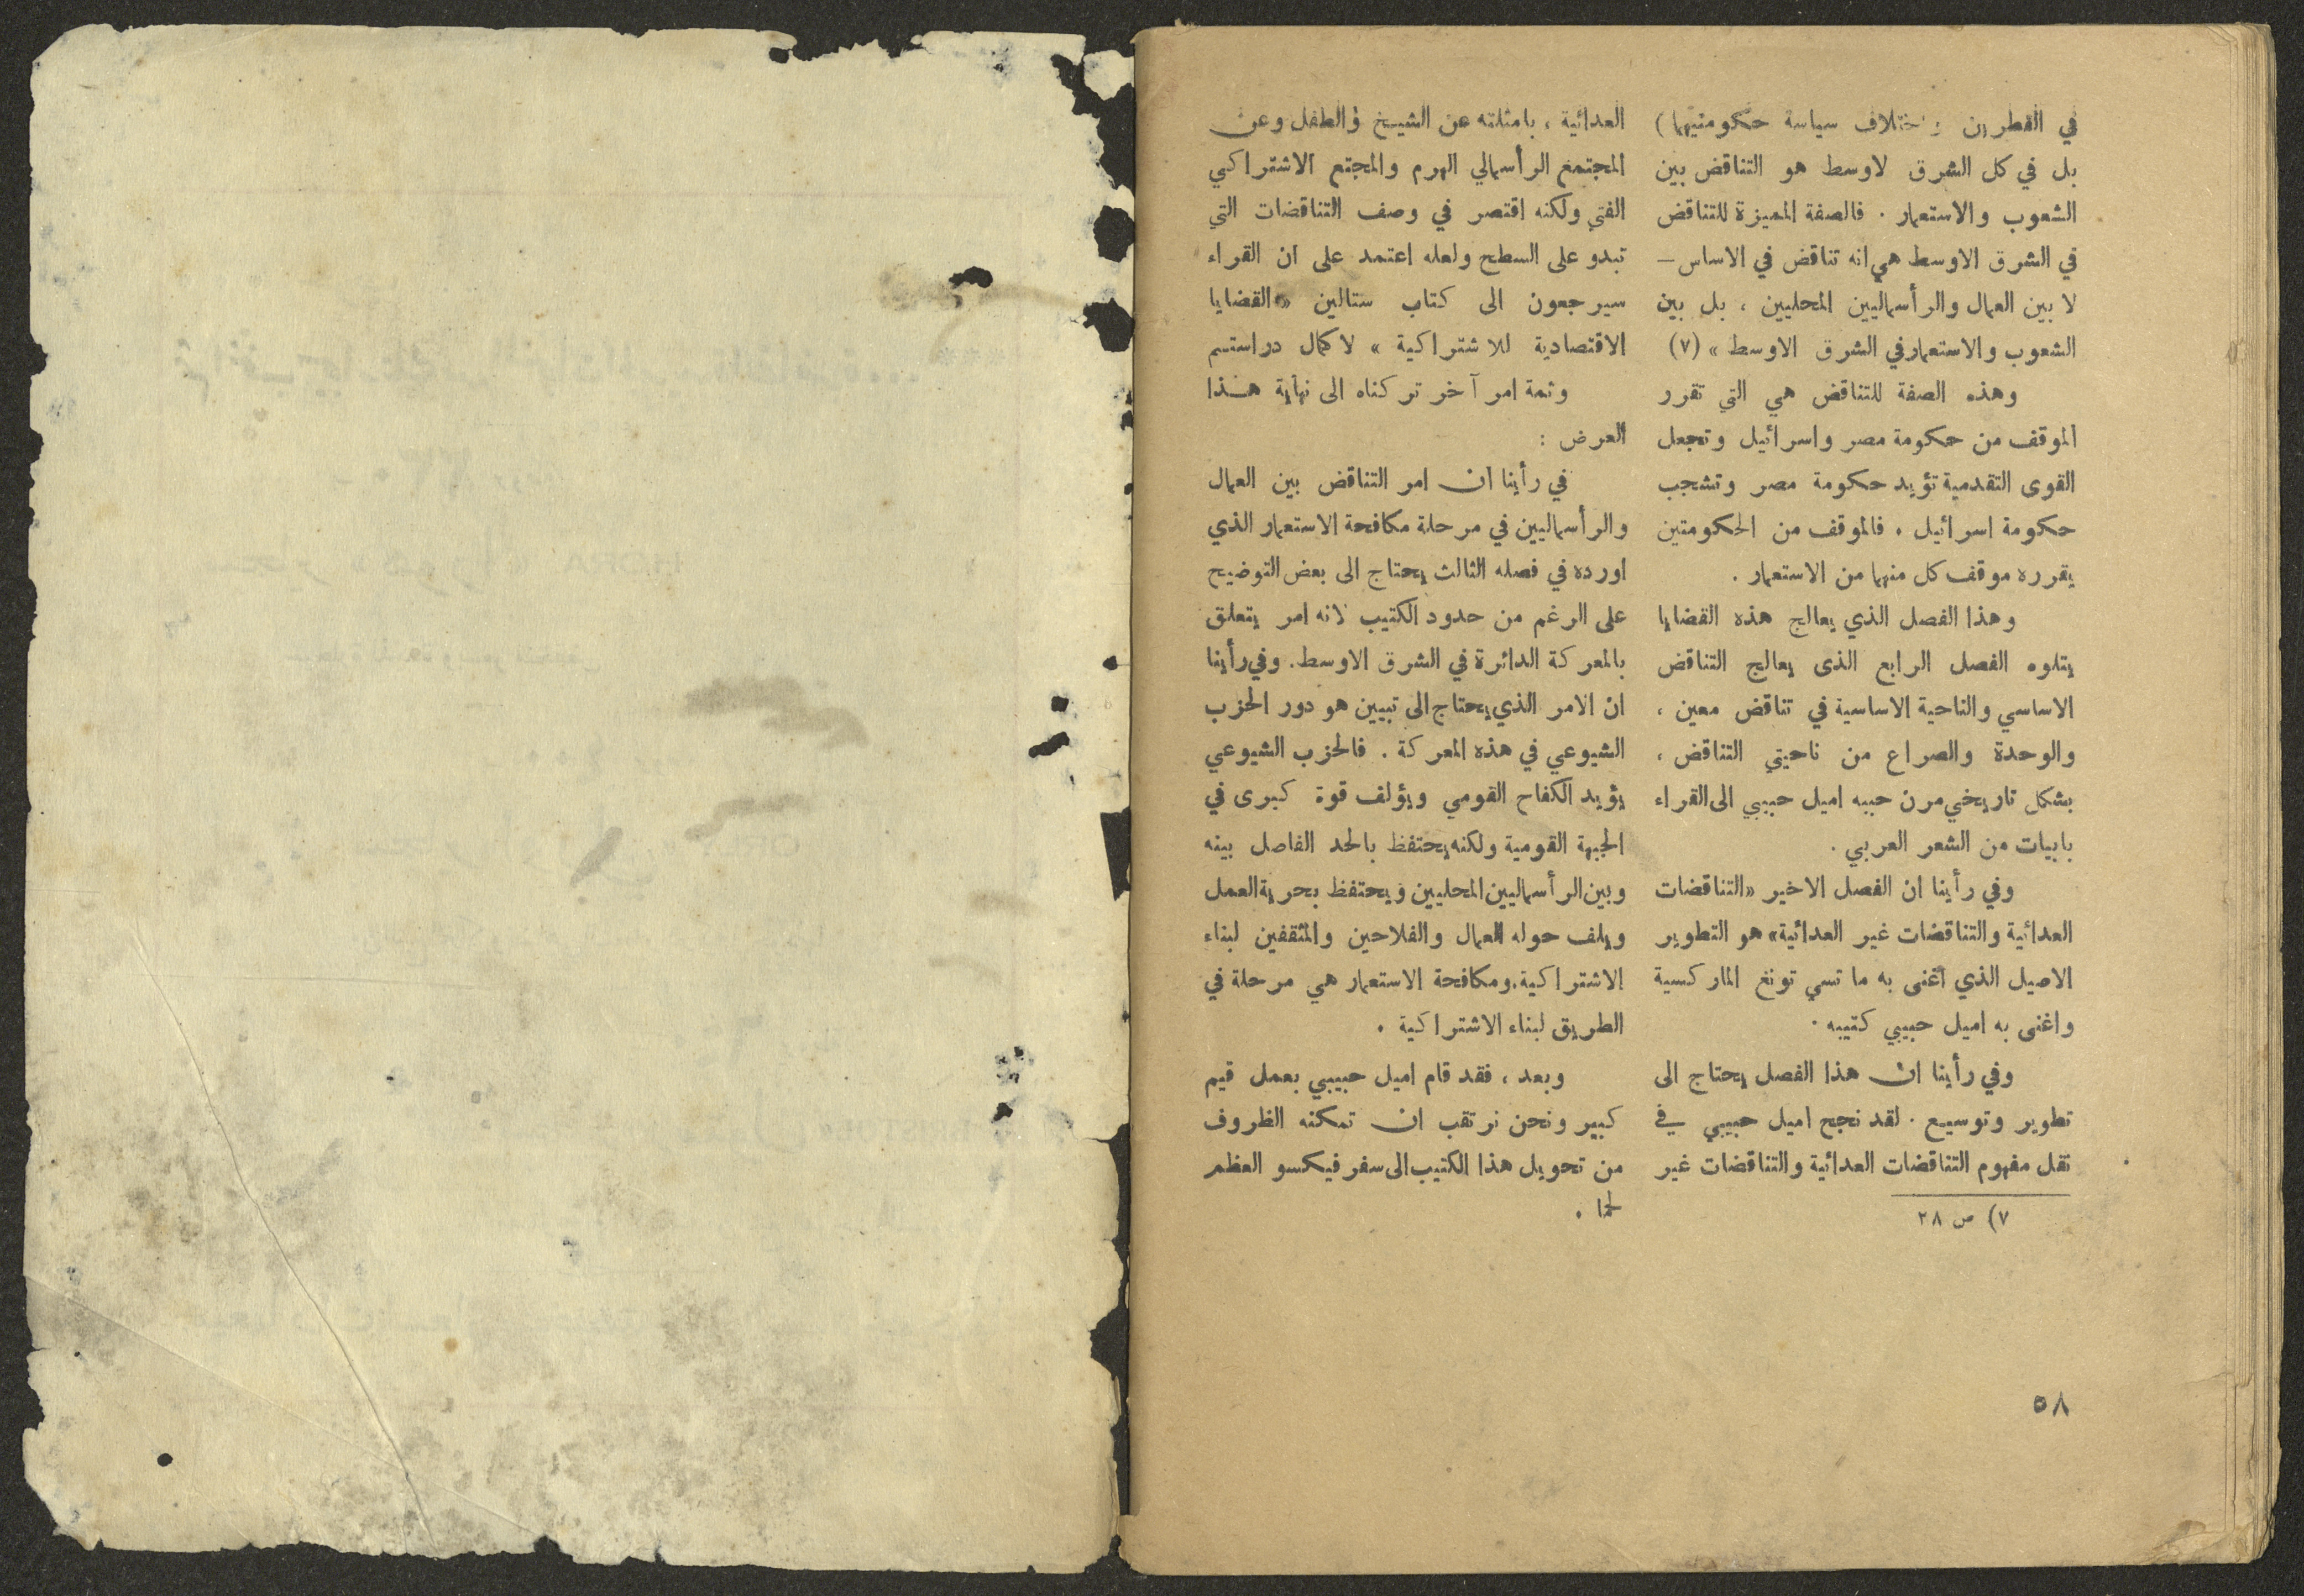 في القطرين واختلاف سياسة حكومتيهما)
بل في كل الشرق لاوسط هو التناقض بين
الشعوب والاستعمار . فالصفة المميزة للتناقض
في الشرق الاوسط هي انه تناقض في الاساس —
لا بين العمال والرأسماليين المحليين ، بل بين
الشعوب والاستعمار في الشرق الاوسط » (٧)
وهذه الصفة للتناقض هي التي تقرر
الموقف من حكومة مصر واسرائيل وتجعل
القوى التقدمية تؤيد حكومة مصر وتشجب
حكومة اسرائيل . فالموقف من الحكومتين
يقرره موقف كل منهما من الاستعمار .
وهذا الفصل الذي يعالج هذه القضايا
يتلوه الفصل الرابع الذى يعالج التناقض
الاساسي والناحية الاساسية في تناقض معين ،
والوحدة والصراع من ناحيتي التناقض ،
بشكل تاريخي مرن حببه اميل حبيبي الى القراء
بابيات من الشعر العربي .
وفي رأينا ان الفصل الاخير «التناقضات
العدائية والتناقضات غير العدائية» هو التطوير
الاصيل الذي أغنى به ما تسي تونغ الماركسية
واغنى به اميل حبيبي كتيبه .
وفي رأينا ان هذا الفصل يحتاج الى
تطوير وتوسيع . لقد نجح اميل حبيبي في
نقل مفهوم التناقضات العدائية والتناقضات غير
٧) ص ٢٨
العدائية ، بامثلته عن الشيخ والطفل وعن
المجتمع الرأسمالي الهرم والمجتع الاشتراكي
الفتي ولكنه اقتصر في وصف التناقضات التي
تبدو على السطح ولعله اعتمد على ان القراء
سيرجعون الى كتاب ستالين «القضايا
الاقتصادية للاشتراكية » لاكمال دراستهم
وثمة امر آخر تركناه الى نهاية هذا
العرض :
في رأينا ان امر التناقض بين العمال
والرأسماليين في مرحلة مكافحة الاستعمار الذي
اورده في فصله الثالث يحتاج الى بعض التوضيح
على الرغم من حدود الكتيب لانه امر يتعلق
بالمعركة الدائرة في الشرق الاوسط. وفي رأينا
ان الامر الذي يحتاج الى تبيين هو دور الحزب
الشيوعي في هذه المعركة . فالحزب الشيوعي
يؤيد الكفاح القومي ويؤلف قوة كبرى في
الجبهة القومية ولكنه يحتفظ بالحد الفاصل بينه
وبين الرأسماليين المحليين ويحتفظ بحرية العمل
ويلف حوله العمال والفلاحين والمثقفين لبناء
الاشتراكية. ومكافحة الاستعمار هي مرحلة في
الطريق لبناء الاشتراكية .
وبعد ، فقد قام اميل حبيبي بعمل قيم
كبير ونحن نرتقب ان تمكنه الظروف
من تحويل هذا الكتيب الى سفر فيكسو العظم
لحما .
٥٨